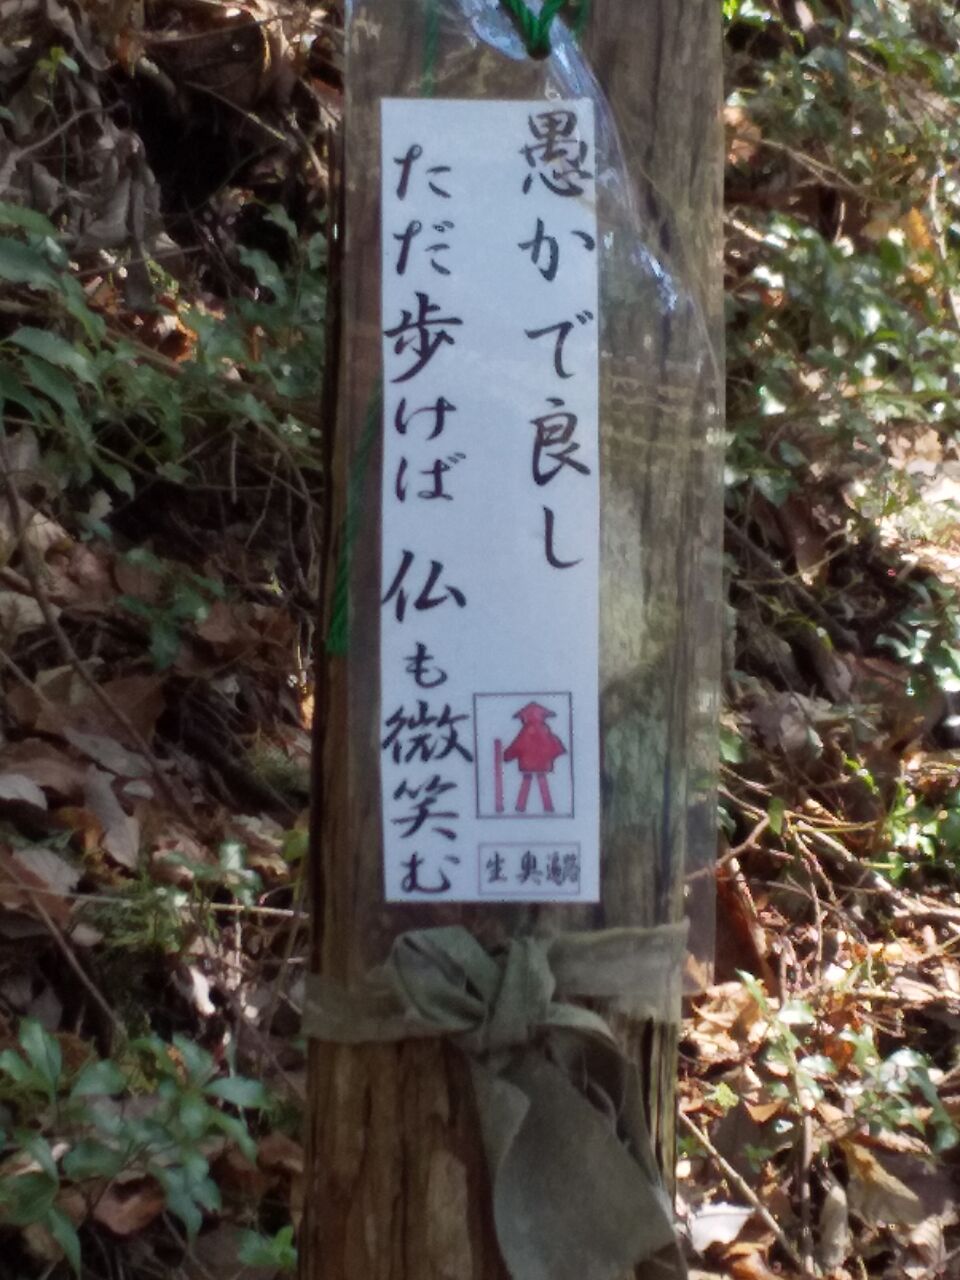 愚かで良し
ただ歩けば 仏も微笑む
生 奥遍路